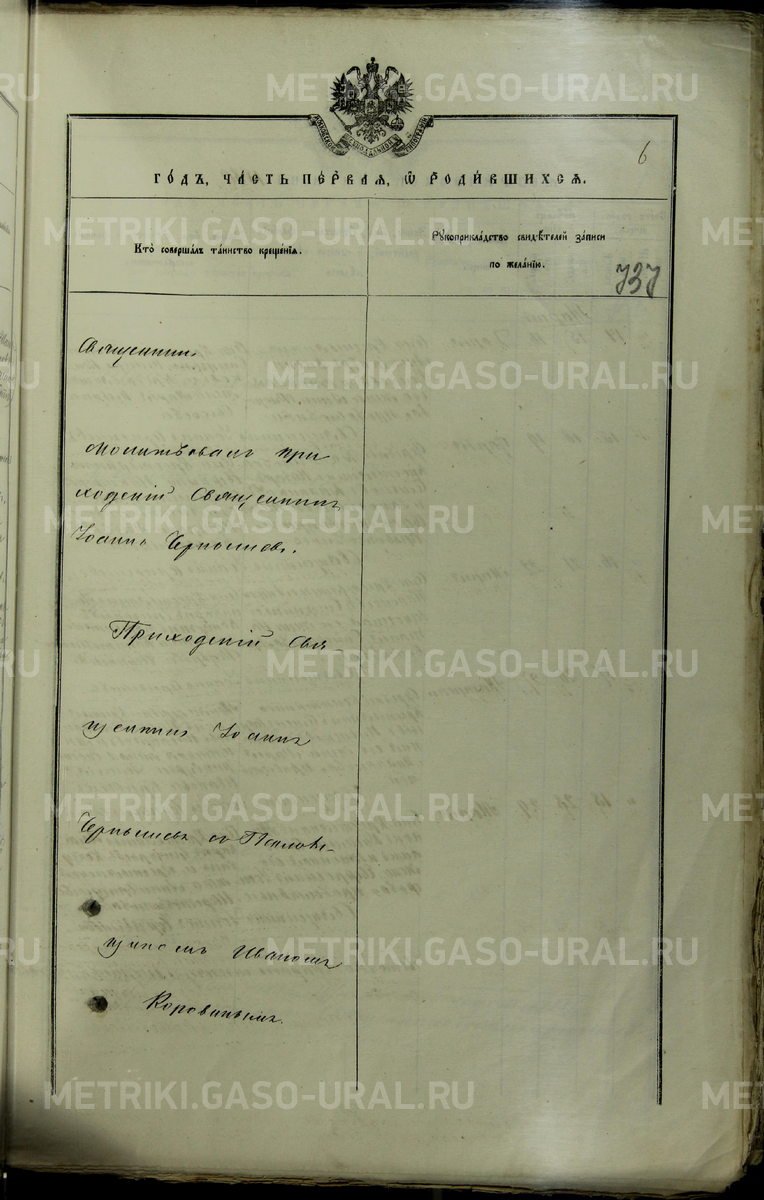 6
ГО́ДЪ, ЧА́СТЬ ПЕ́РВАѦ, Ѡ҆ РОДИ́ВШИХСѦ.
Кто̀ соверша́лъ та́инство креще́нїѧ.
Рꙋкоприкла́дство свидѣ́телей за́писи
по жела́нїю.
737
Священникъ
Молитвовалъ при
ходскій Священникъ
Іоаннъ
Приходскій Свя-
щенникъ Іоаннъ
съ Псалом-
щикомъ Иваномъ
Коровинымъ.
METRIKI.GASO-URAL.RU